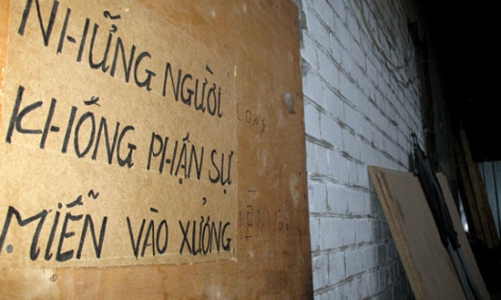 NHỮNG NGƯỜI
KHÔNG PHẬN SỰ
MIỄN VÀO XƯỞNG.